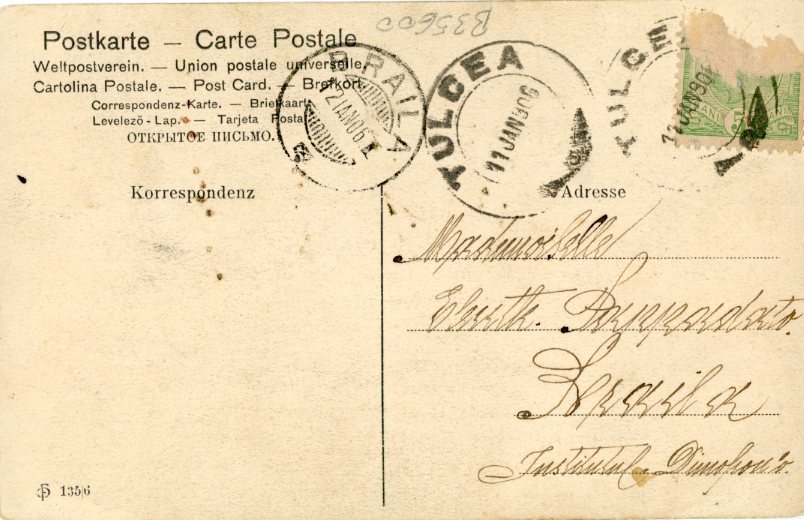 B35600
Postkarte — Carte Postale
Weltpostverein. — Union postale universelle.
Cartolina Postale. — Post Card. — Brefkort.
Correspondenz-Karte. — Briefkaart
Levelező-Lap. — Tarjeta Postal
ОТКРЫТОЕ ПИСЬМО.
BRAILA
12 IAN 06
TULCEA
11 JAN 906
TULCE
11 JAN 906
Korrespondenz
Adresse
Mademoiselle
Braila
Institutul
135/6